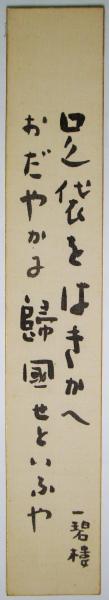 足袋をはきかへ
おだやかに歸國せといふや
一碧樓